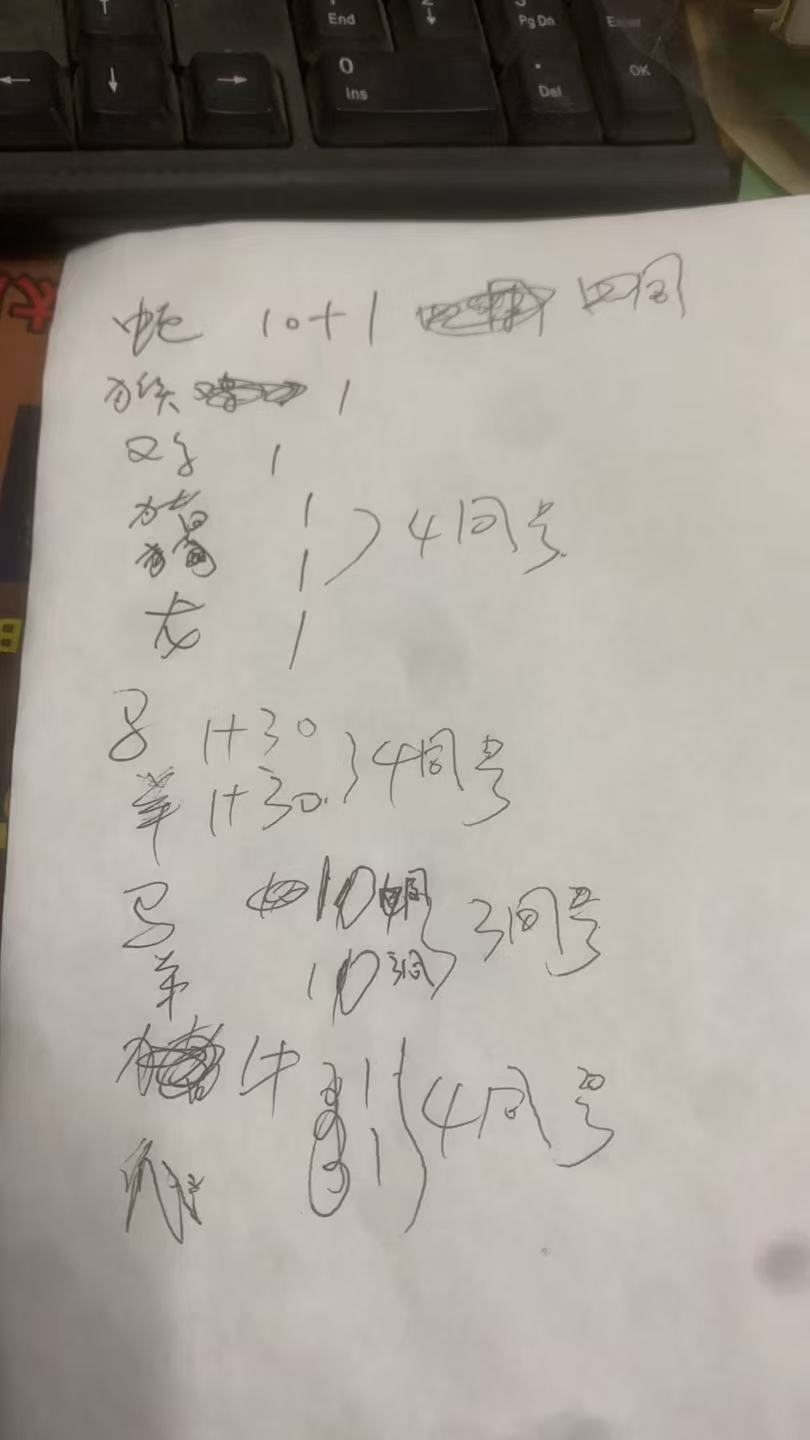 End
Pg Dn
Enter
0
Ins
Del
OK
蛇 10+1 四同
猴 1
鸡 1
猪 1
1
4同号
龙 1
马 1+30
羊 1+30
4同号
马 10
羊 10 3同
3同号
牛 1
1
4同号